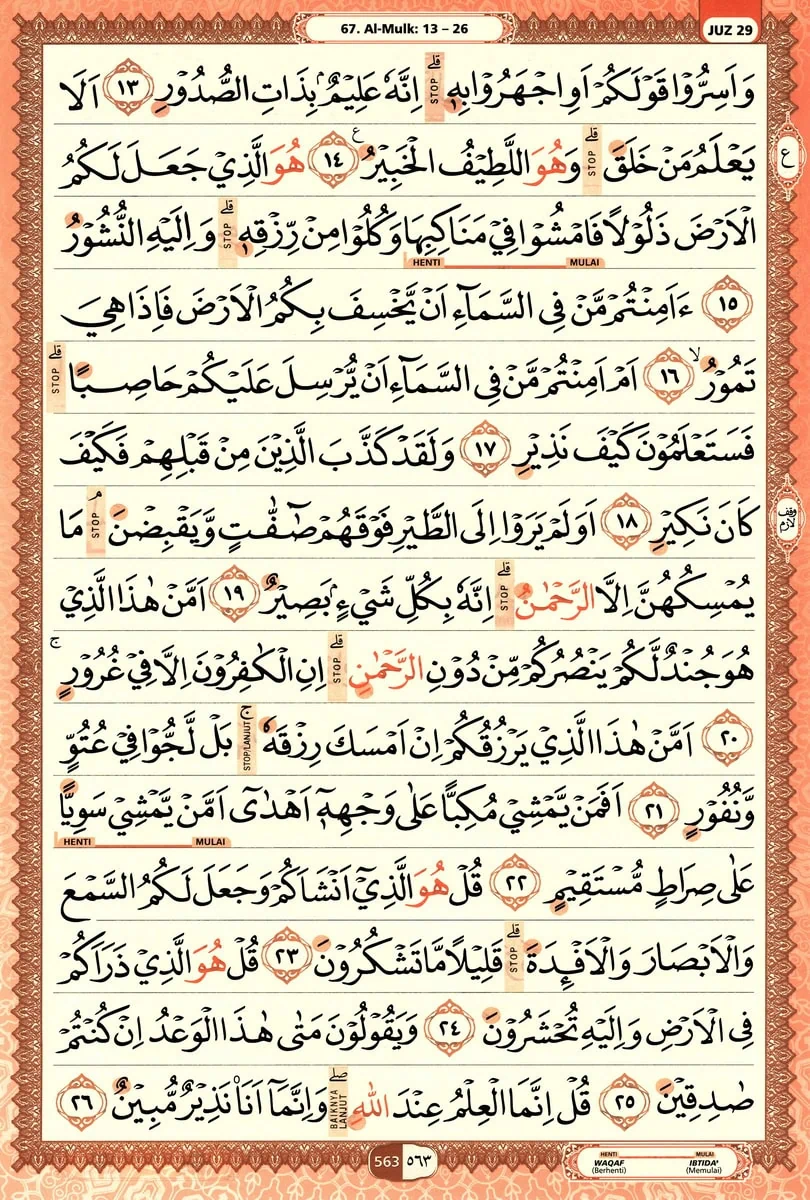 67. Al-Mulk: 13 – 26
JUZ 29
وَاَسِرُّوْا قَوْلَكُمْ اَوِ اجْهَرُوْا بِهٖۗ STOP اِنَّهٗ عَلِيْمٌۢ بِذَاتِ الصُّدُوْرِ ١٣ اَلَا
يَعْلَمُ مَنْ خَلَقَۗ STOP وَهُوَ اللَّطِيْفُ الْخَبِيْرُ ࣖ ١٤ هُوَ الَّذِيْ جَعَلَ لَكُمُ
ع
الْاَرْضَ ذَلُوْلًا فَامْشُوْا فِيْ مَنَاكِبِهَا وَكُلُوْا مِنْ رِّزْقِهٖۗ STOP وَاِلَيْهِ النُّشُوْرُ
HENTI MULAI
١٥ ءَاَمِنْتُمْ مَّنْ فِى السَّمَاۤءِ اَنْ يَّخْسِفَ بِكُمُ الْاَرْضَ فَاِذَا هِيَ
تَمُوْرُۙ ١٦ اَمْ اَمِنْتُمْ مَّنْ فِى السَّمَاۤءِ اَنْ يُّرْسِلَ عَلَيْكُمْ حَاصِبًاۗ STOP
فَسَتَعْلَمُوْنَ كَيْفَ نَذِيْرِ ١٧ وَلَقَدْ كَذَّبَ الَّذِيْنَ مِنْ قَبْلِهِمْ فَكَيْفَ
كَانَ نَكِيْرِ ١٨ اَوَلَمْ يَرَوْا اِلَى الطَّيْرِ فَوْقَهُمْ صٰۤفّٰتٍ وَّيَقْبِضْنَۘ STOP مَا
وقف لازم
يُمْسِكُهُنَّ اِلَّا الرَّحْمٰنُۗ STOP اِنَّهٗ بِكُلِّ شَيْءٍۢ بَصِيْرٌ ١٩ اَمَّنْ هٰذَا الَّذِيْ
هُوَ جُنْدٌ لَّكُمْ يَنْصُرُكُمْ مِّنْ دُوْنِ الرَّحْمٰنِۗ STOP اِنِ الْكٰفِرُوْنَ اِلَّا فِيْ غُرُوْرٍۚ
٢٠ اَمَّنْ هٰذَا الَّذِيْ يَرْزُقُكُمْ اِنْ اَمْسَكَ رِزْقَهٗۚ STOP/LANJUT بَلْ لَّجُّوْا فِيْ عُتُوٍّ
وَّنُفُوْرٍ ٢١ اَفَمَنْ يَّمْشِيْ مُكِبًّا عَلٰى وَجْهِهٖٓ اَهْدٰىٓ اَمَّنْ يَّمْشِيْ سَوِيًّا
HENTI MULAI
عَلٰى صِرَاطٍ مُّسْتَقِيْمٍ ٢٢ قُلْ هُوَ الَّذِيْٓ اَنْشَاَكُمْ وَجَعَلَ لَكُمُ السَّمْعَ
وَالْاَبْصَارَ وَالْاَفْـِٕدَةَۗ STOP قَلِيْلًا مَّا تَشْكُرُوْنَ ٢٣ قُلْ هُوَ الَّذِيْ ذَرَاَكُمْ
فِى الْاَرْضِ وَاِلَيْهِ تُحْشَرُوْنَ ٢٤ وَيَقُوْلُوْنَ مَتٰى هٰذَا الْوَعْدُ اِنْ كُنْتُمْ
صٰدِقِيْنَ ٢٥ قُلْ اِنَّمَا الْعِلْمُ عِنْدَ اللّٰهِۖ BAIKNYA LANJUT وَاِنَّمَآ اَنَا۠ نَذِيْرٌ مُّبِيْنٌ ٢٦
563 ٥٦٣
HENTI MULAI
WAQAF IBTIDA'
(Berhenti) (Memulai)